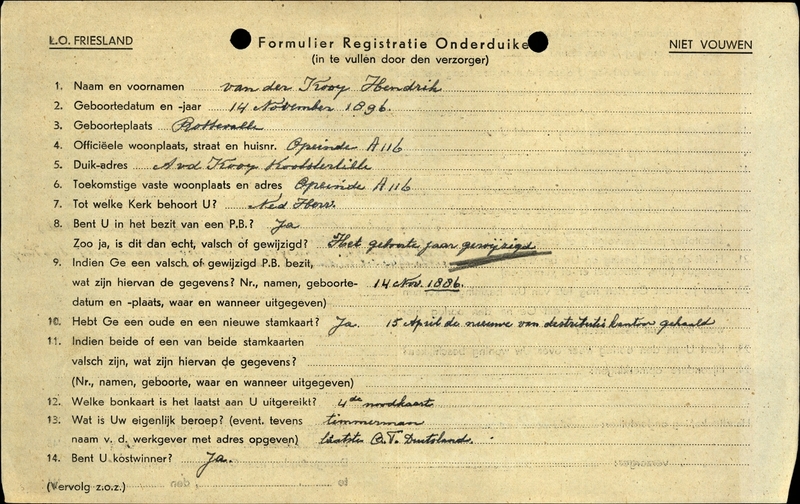 L.O. FRIESLAND
Formulier Registratie Onderduike
NIET VOUWEN
(in te vullen door den verzorger)
1. Naam en voornamen van der Kooy Hendrik
2. Geboortedatum en -jaar 14 November 1896.
3. Geboorteplaats Rottevalle
4. Officiëele woonplaats, straat en huisnr. Opeinde A 116
5. Duik-adres A vd Kooy Kootstertille
6. Toekomstige vaste woonplaats en adres Opeinde A 116
7. Tot welke Kerk behoort U? Ned Herv.
8. Bent U in het bezit van een P.B.? Ja
Zoo ja, is dit dan echt, valsch of gewijzigd? Het geboorte jaar gewijzigd
9. Indien Ge een valsch of gewijzigd P.B. bezit,
wat zijn hiervan de gegevens? Nr., namen, geboorte- 14 Nov. 1886.
datum en -plaats, waar en wanneer uitgegeven)
10. Hebt Ge een oude en een nieuwe stamkaart? Ja. 15 April de nieuwe van destributiekantoor gehaald
11. Indien beide of een van beide stamkaarten
valsch zijn, wat zijn hiervan de gegevens?
(Nr., namen, geboorte, waar en wanneer uitgegeven)
12. Welke bonkaart is het laatst aan U uitgereikt? 4de noodkaart
13. Wat is Uw eigenlijk beroep? (event. tevens timmerman
naam v. d. werkgever met adres opgeven) laatste O.T. Duitsland.
14. Bent U kostwinner? Ja.
(Vervolg z.o.z.)